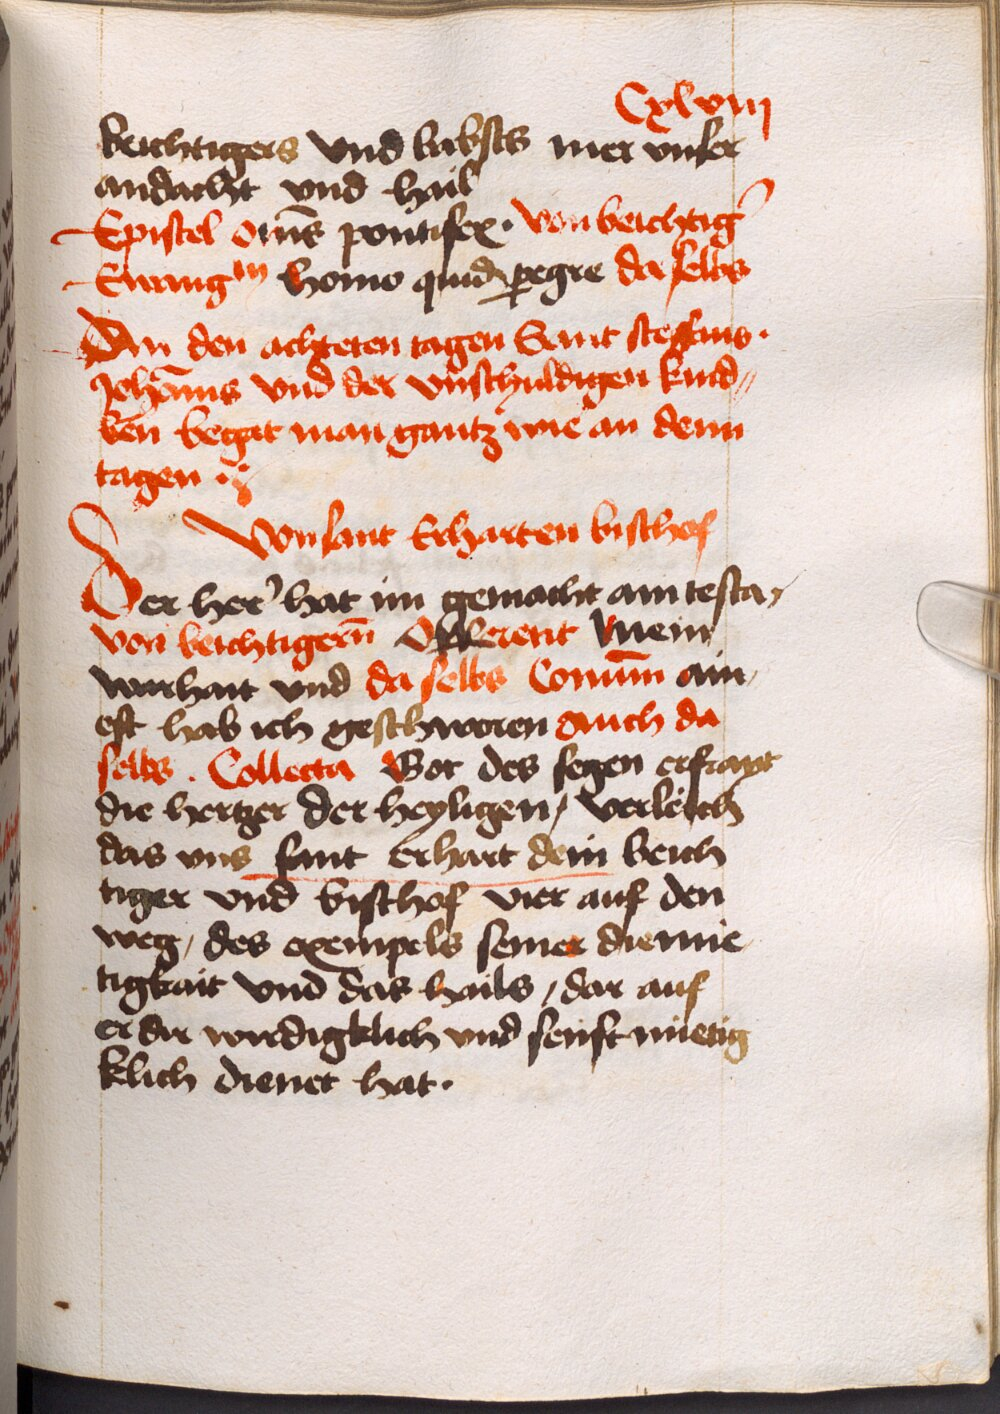 Cxlviij
beichtigers vnd babsts mer vnser
andacht vnd hail
Epistel om̄s pontifex. von beichtig̾
Ewang̾ᵐ homo quidā pegre da selbs
An den achteten tagen Sant steffans.
Joh̄anns vnd der vnschuldigen kind„
len begat man gantz wie an denn
tagen
Von sant Erharten bischof
Der her̾ hat im gemacht ain testa„
von beichtigern̄ Offerent Mein
warhait vnd da selbs Comūn ain„
est hab ich geschworen auch da
selbs . Collecta Got des segen erfrayt
die hertzer der heyligen / verleich
das vns sant erhart dein beich
tiger vnd bischof vier auf den
weg / des exempels seiner diemie„
tigkait vnd das hails / dar auf
er dir wirdigklich vnd senft mietig
klich dienet hat .